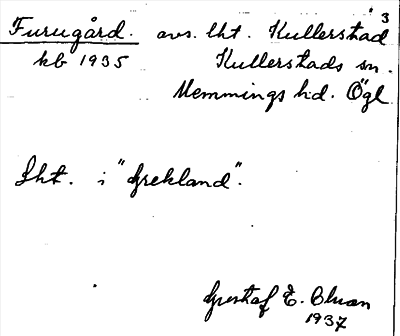 3
Furugård. avs. lht. Kullerstad
kb 1935 Kullerstads sn.
Memmings hd. Ögl.
Lht. i "Grekland".
Gustaf E. Olsson
1937